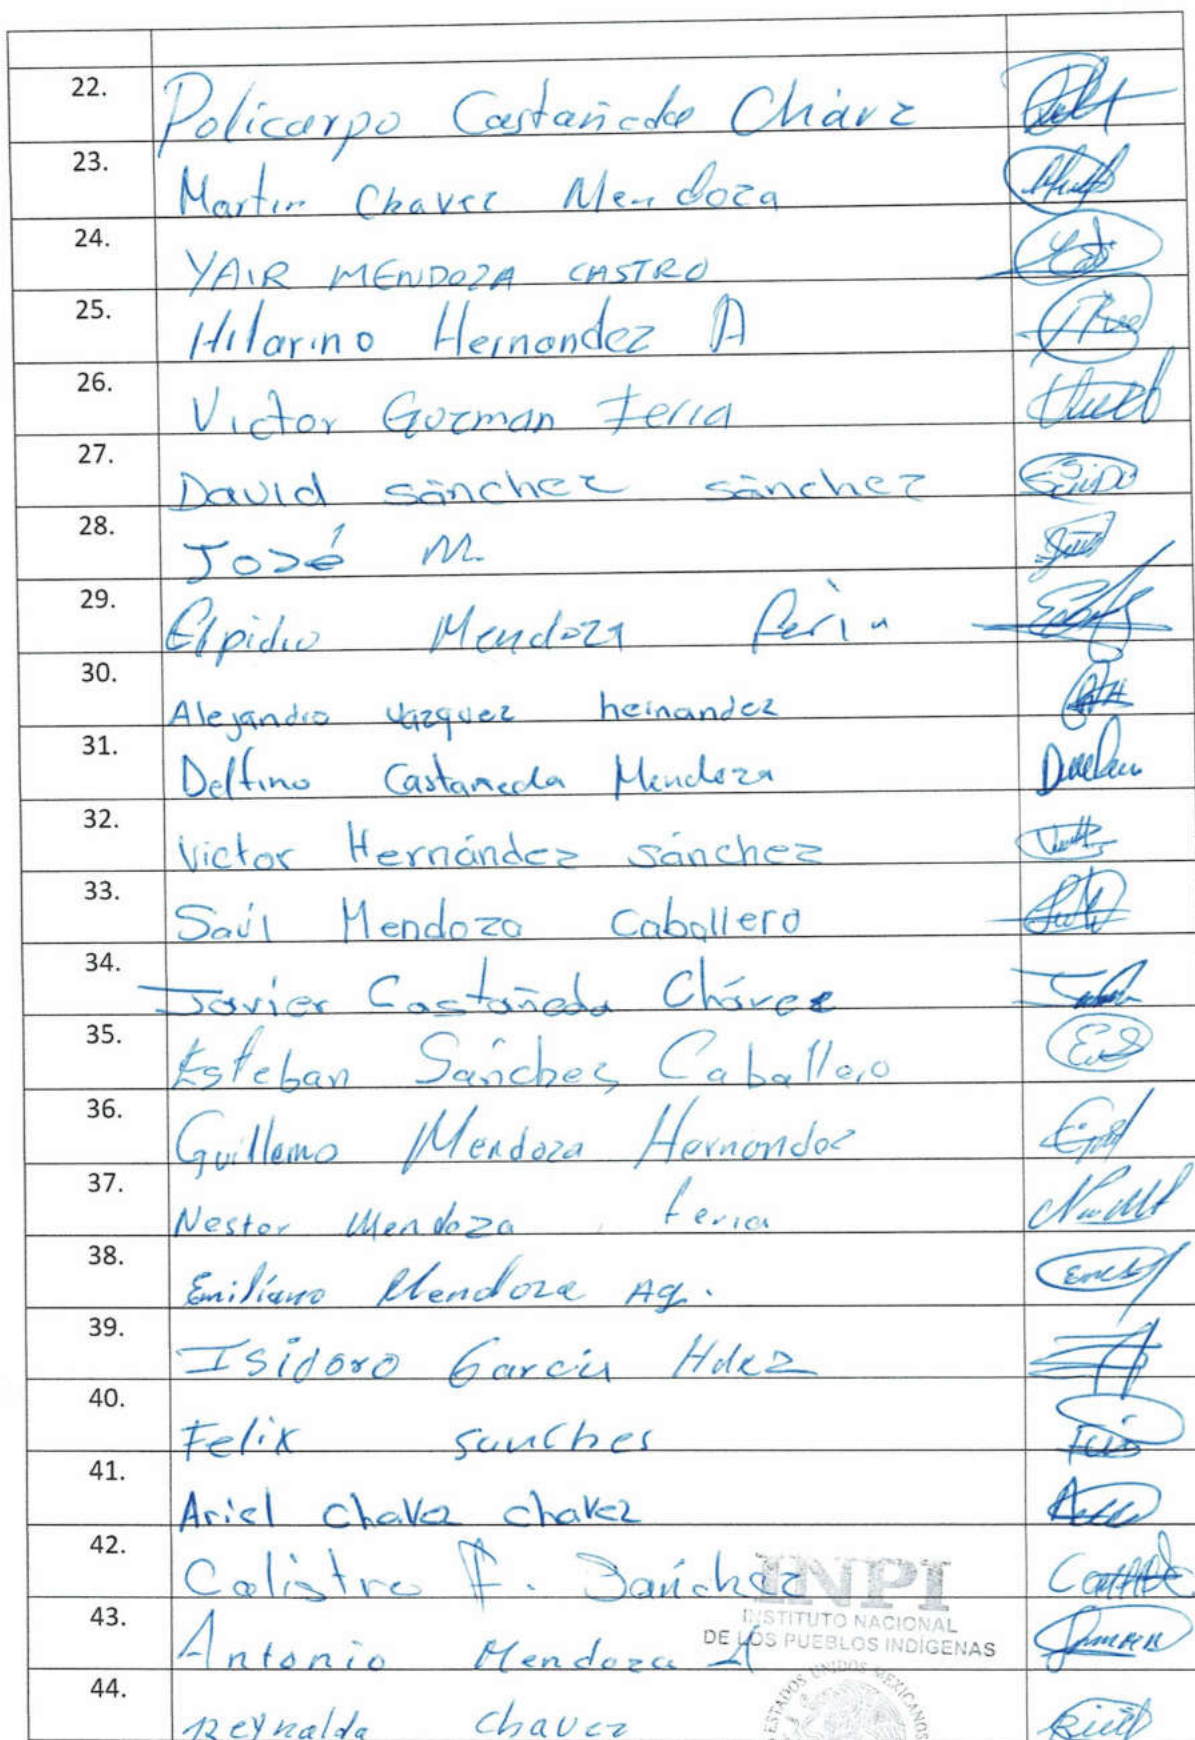 22. Policarpo Castañeda Chávz
23. Martin Chavez Mendoza
24. YAIR MENDOZA CASTRO
25. Hilarino Hernandez A
26. Victor Guzman Feria
27. David sánchez sánchez
28. José M.
29. Elpidio Mendoza feria
30. Alejandro vazquez hernandez
31. Delfino Castaneda Mendoza
32. Victor Hernández sánchez
33. Saúl Mendoza Caballero
34. Javier Castañeda Chávez
35. Esteban Sánchez Caballero
36. Guillermo Mendoza Hernandez
37. Nestor Mendoza feria
38. Emiliano Mendoza Ag.
39. Isidoro Garcia Hdez
40. Felix sanches
41. Ariel chavez chavez
42. Calistro F. Sánchez
INPI
INSTITUTO NACIONAL
DE LOS PUEBLOS INDÍGENAS
43. Antonio Mendoza A
44. Reynalda chavez
ESTADOS UNIDOS MEXICANOS